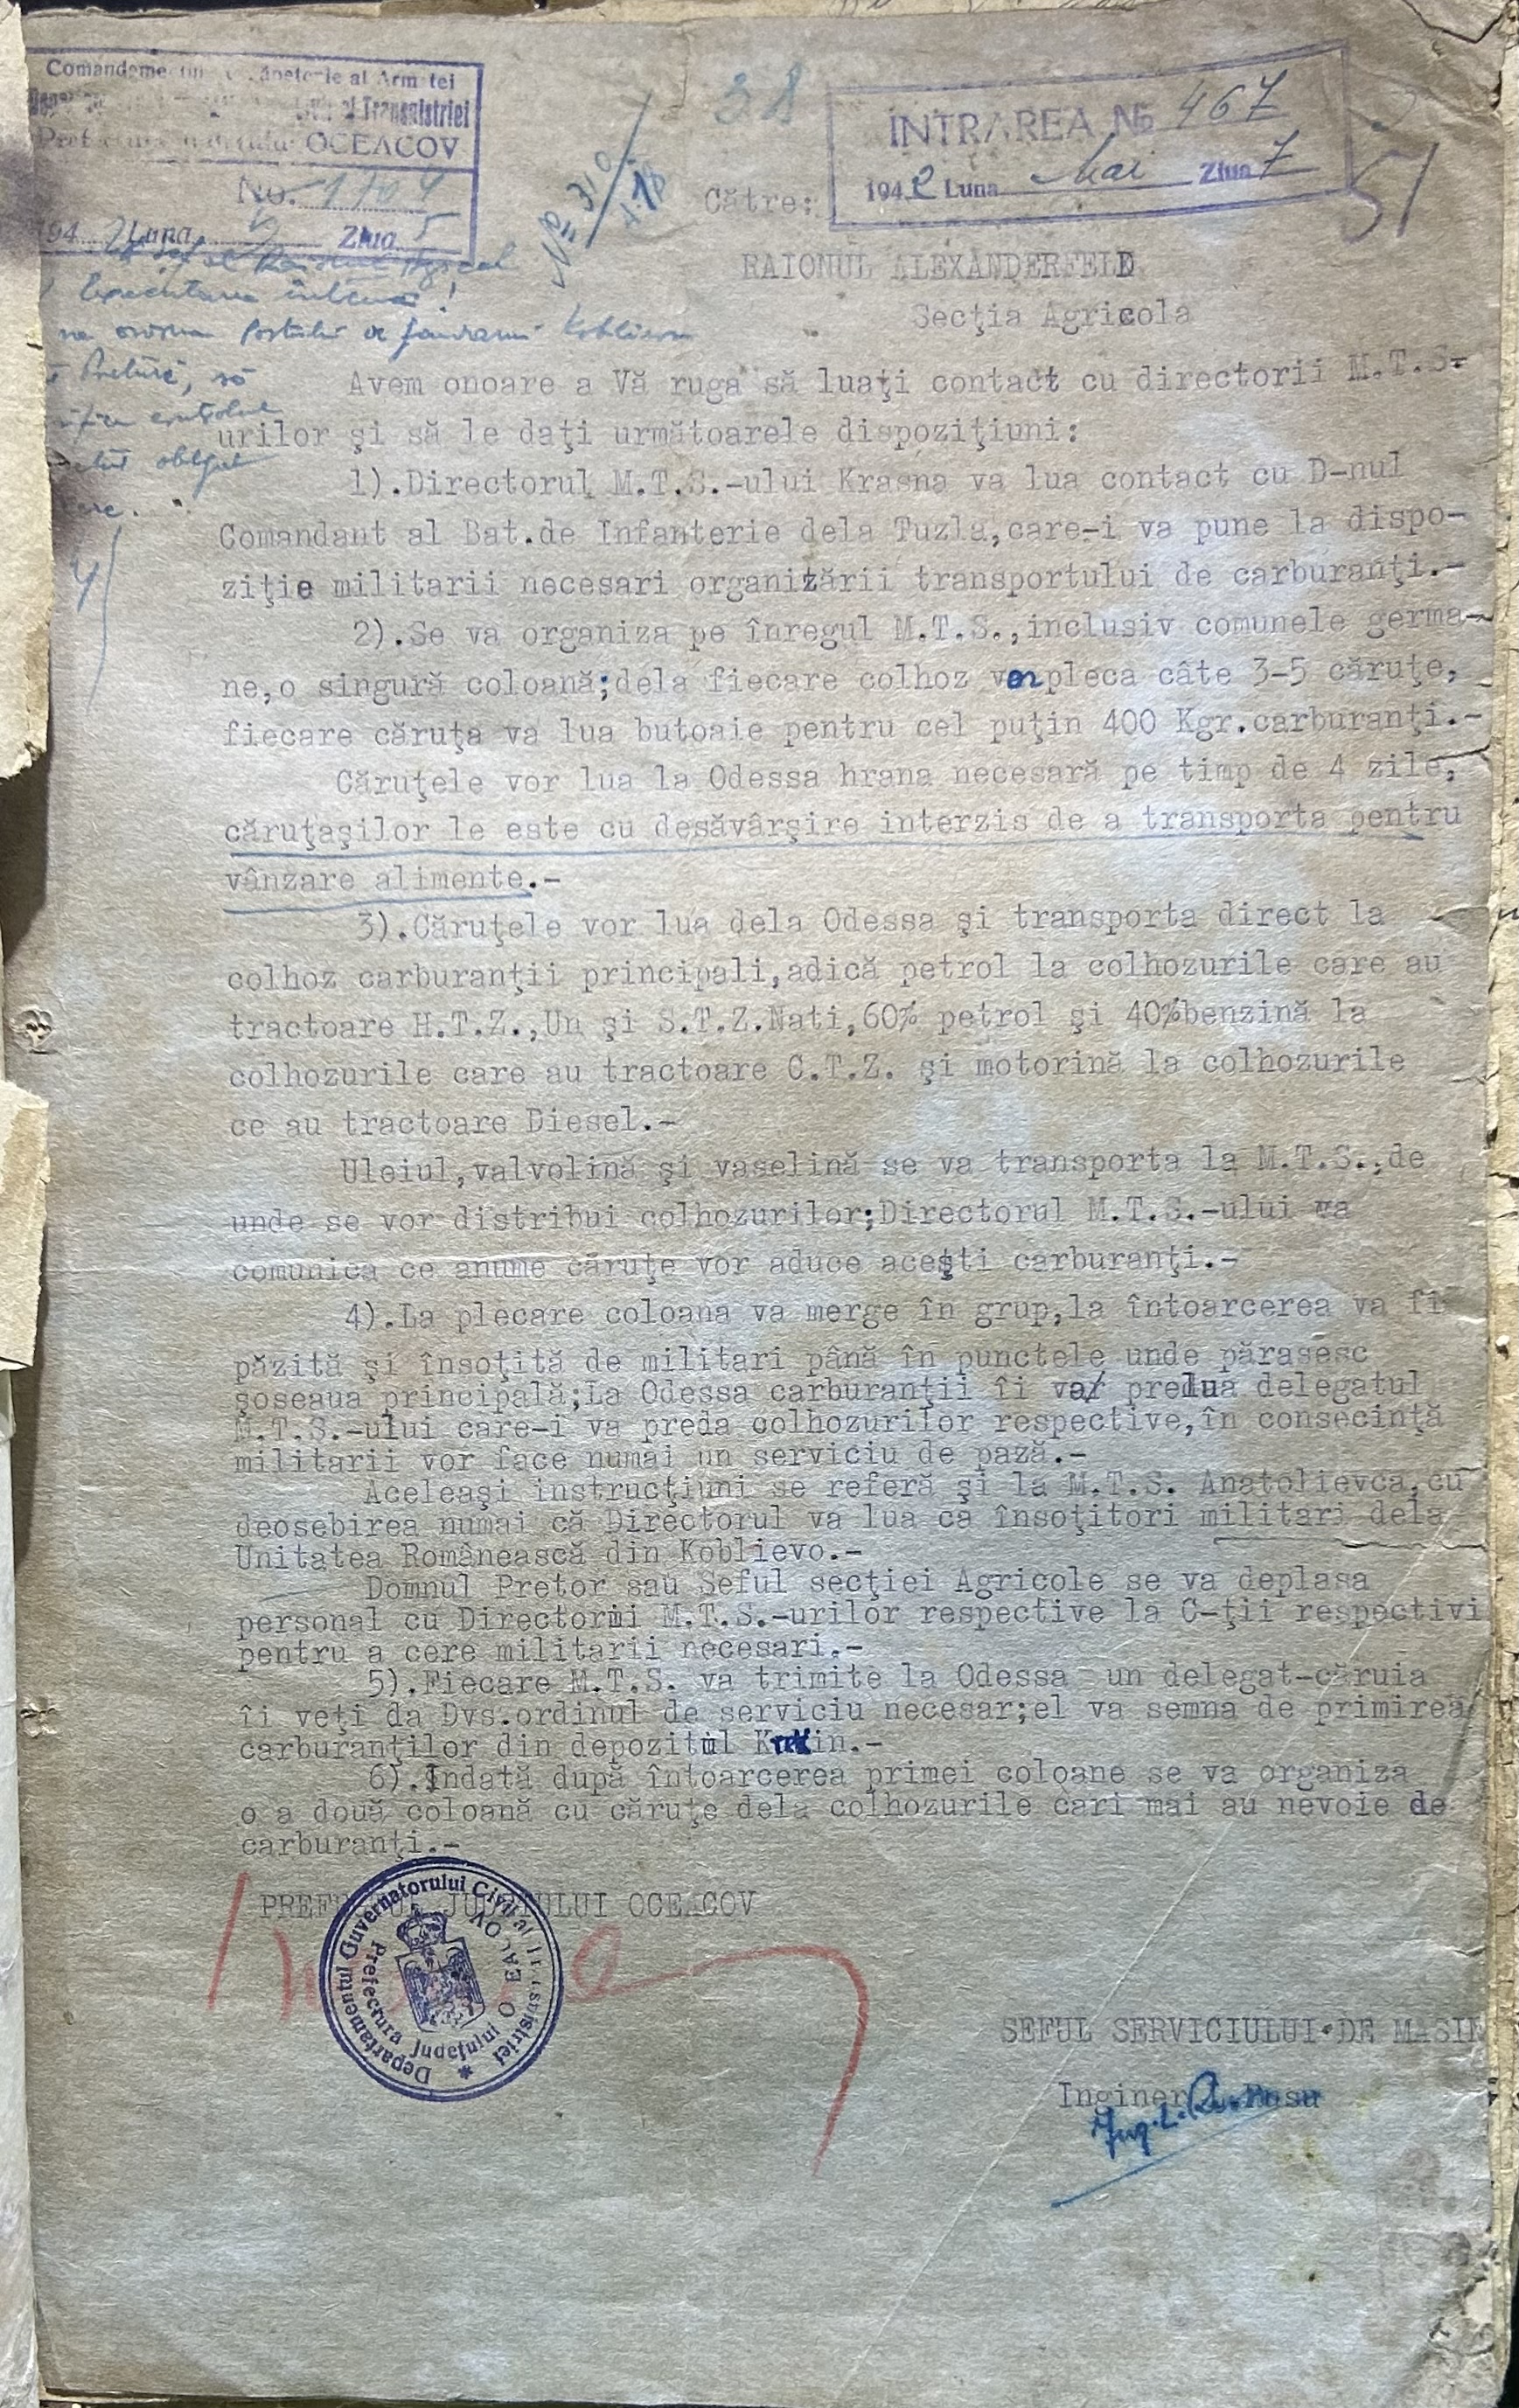 Comandamentul de Căpeterie al Armatei
al Transnistriei
Prefectura Județului OCEACOV
No. 1704
194 2 Luna 5 Ziua 5
38
INTRAREA № 467
194 2 Luna Mai Ziua 7
51
Către:
RAIONUL ALEXANDERFELD
Secţia Agricola
Avem onoare a Vă ruga să luaţi contact cu directorii M.T.S.-
urilor şi să le daţi următoarele dispoziţiuni:
1).Directorul M.T.S.-ului Krasna va lua contact cu D-nul
Comandant al Bat.de Infanterie dela Tuzla,care-i va pune la dispo-
ziţie militarii necesari organizării transportului de carburanţi.-
2).Se va organiza pe înregul M.T.S.,inclusiv comunele germa-
ne,o singură coloană;dela fiecare colhoz vor pleca câte 3-5 căruţe,
fiecare căruţa va lua butoaie pentru cel puţin 400 Kgr.carburanţi.-
Căruţele vor lua la Odessa hrana necesară pe timp de 4 zile,
căruţaşilor le este cu desăvârşire interzis de a transporta pentru
vânzare alimente.-
3).Căruţele vor lua dela Odessa şi transporta direct la
colhoz carburanţii principali,adică petrol la colhozurile care au
tractoare H.T.Z.,Un şi S.T.Z.Nati,60% petrol şi 40%benzină la
colhozurile care au tractoare C.T.Z. şi motorină la colhozurile
ce au tractoare Diesel.-
Uleiul,valvolină şi vaselină se va transporta la M.T.S.,de
unde se vor distribui colhozurilor;Directorul M.T.S.-ului va
comunica ce anume căruţe vor aduce aceşti carburanţi.-
4).La plecare coloana va merge în grup,la întoarcerea va fi
păzită şi însoţită de militari până în punctele unde părasesc
şoseaua principală;La Odessa carburanţii îi va prelua delegatul
M.T.S.-ului care-i va preda colhozurilor respective,în consecinţă
militarii vor face numai un serviciu de pază.-
Aceleaşi instrucţiuni se referă şi la M.T.S. Anatolievca,cu
deosebirea numai că Directorul va lua ca însoţitori militari dela
Unitatea Românească din Koblievo.-
Domnul Pretor sau Seful secţiei Agricole se va deplasa
personal cu Directorii M.T.S.-urilor respective la C-ţii respectivi
pentru a cere militarii necesari.-
5).Fiecare M.T.S. va trimite la Odessa un delegat-căruia
îi veţi da Dvs.ordinul de serviciu necesar;el va semna de primirea
carburanţilor din depozitul
6).Indată după întoarcerea primei coloane se va organiza
o a două coloană cu căruţe dela colhozurile cari mai au nevoie de
carburanţi.-
PREFECTUL JUDEŢULUI OCEACOV
Departamentul Guvernatorului Civil al Transnistriei
Prefectura Judeţului
SEFUL SERVICIULUI DE MASIN
Inginer Rosu